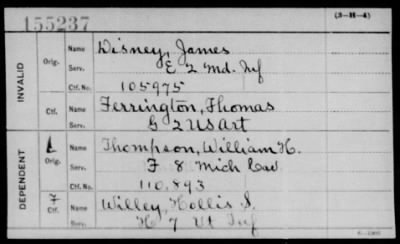 155237
(3-H-4)
INVALID
Orig. Name Disney, James
Serv. E 2 Md. Inf
Ctf. No. 105975
Ctf. Name Ferrington, Thomas
Serv. G 2 US Art
DEPENDENT
Orig. Name Thompson, William H.
Serv. F 8 Mich Cav
Ctf. No. 110.893
Ctf. Name Willey, Hollis S.
Serv. H 7 Vt Inf